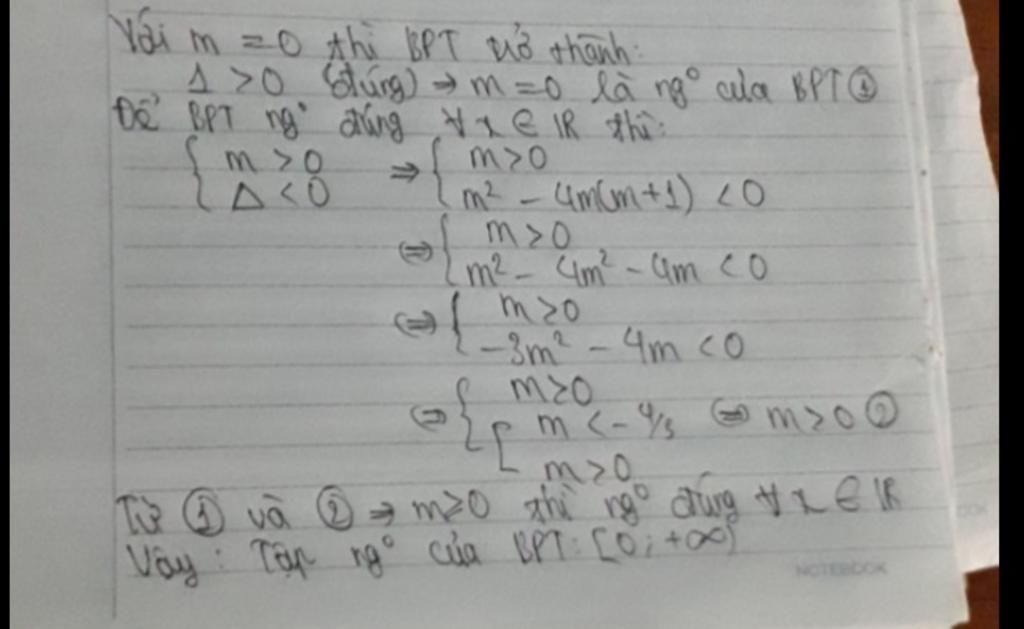 Với m = 0 thì BPT trở thành:
1 > 0 (đúng) → m = 0 là ng° của BPT ①
Để BPT ng° đúng ∀ x ∈ IR thì:
{ m > 0 ⇒ { m > 0
{ Δ < 0 { m² - 4m(m+1) < 0
⇔ { m > 0
{ m² - 4m² - 4m < 0
⇔ { m > 0
{ -3m² - 4m < 0
⇔ { m > 0
{ [ m < - 4/3 ⇔ m > 0 ②
[ m > 0
Từ ① và ② → m ≥ 0 thì ng° đúng ∀ x ∈ IR
Vậy: Tập ng° của BPT: [0; +∞)
NOTEBOOK